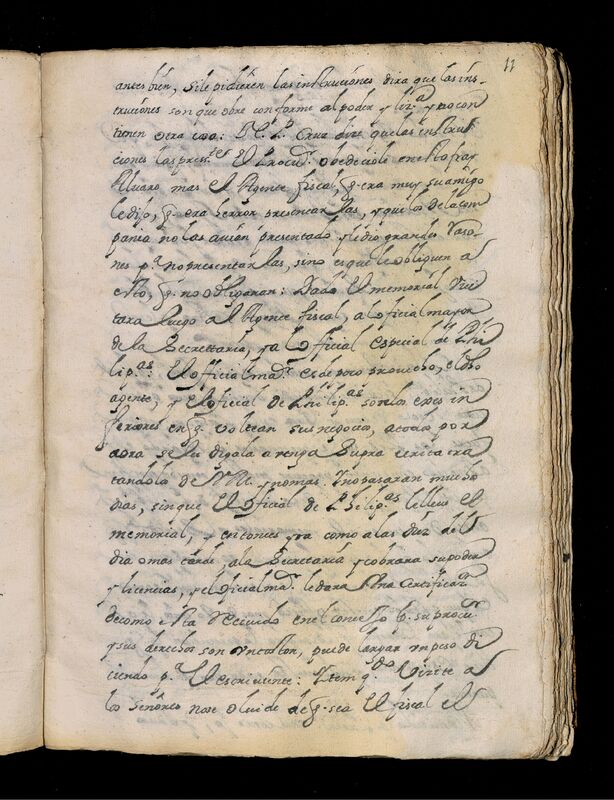 11
antes bien, si le pidieren las instruciónes dira que las ins-
truciónes son que obre conforme al poder y liz.ª y no con
tienen otra cosa: P.e L.º Cruz dize que las instru
ciones las pres.tes El Procu.r obedeciole en esto fray
Alvaro mas el Agente fiscal, q̃ era muy su amigo
le dijo, q̃ era herror presentarlas, y que los de la com
pania no las avian presentado y le dio grandes raso-
nes p.ª no presentarlas, sino es que le obliguen a
esto, q̃ no obligaran: Dado el memorial visi
tara luego al Agente fiscal, al oficial mayor
de la Secrettaria, y al oficial especial de Phi
lip.as: El oficial ma.r es de poco provecho, el dho
agente, y el oficial de Philip.as son los exes in
feriores en q̃ voltean sus negocios, acodas por
aora se les diga la arenga supra verita tra
tandola de Vm. y no mas. No pasaran mucho
dias, sin que el oficial de Philip.as le lleve el
memorial, y entonces yra como a las diez del
dia o mas tarde, a la Secretaria y cobrara su poder
y licencias, y el oficial ma.r le dara una Certificaz.n
de como esta recivido en el consejo p. su procu.r
y sus derechos son un doblon, puede largar un peso di
ciendo p.ª el escriviente: Ytem q.do visite a
los señores no se olvide de q̃ sea el fiscal el